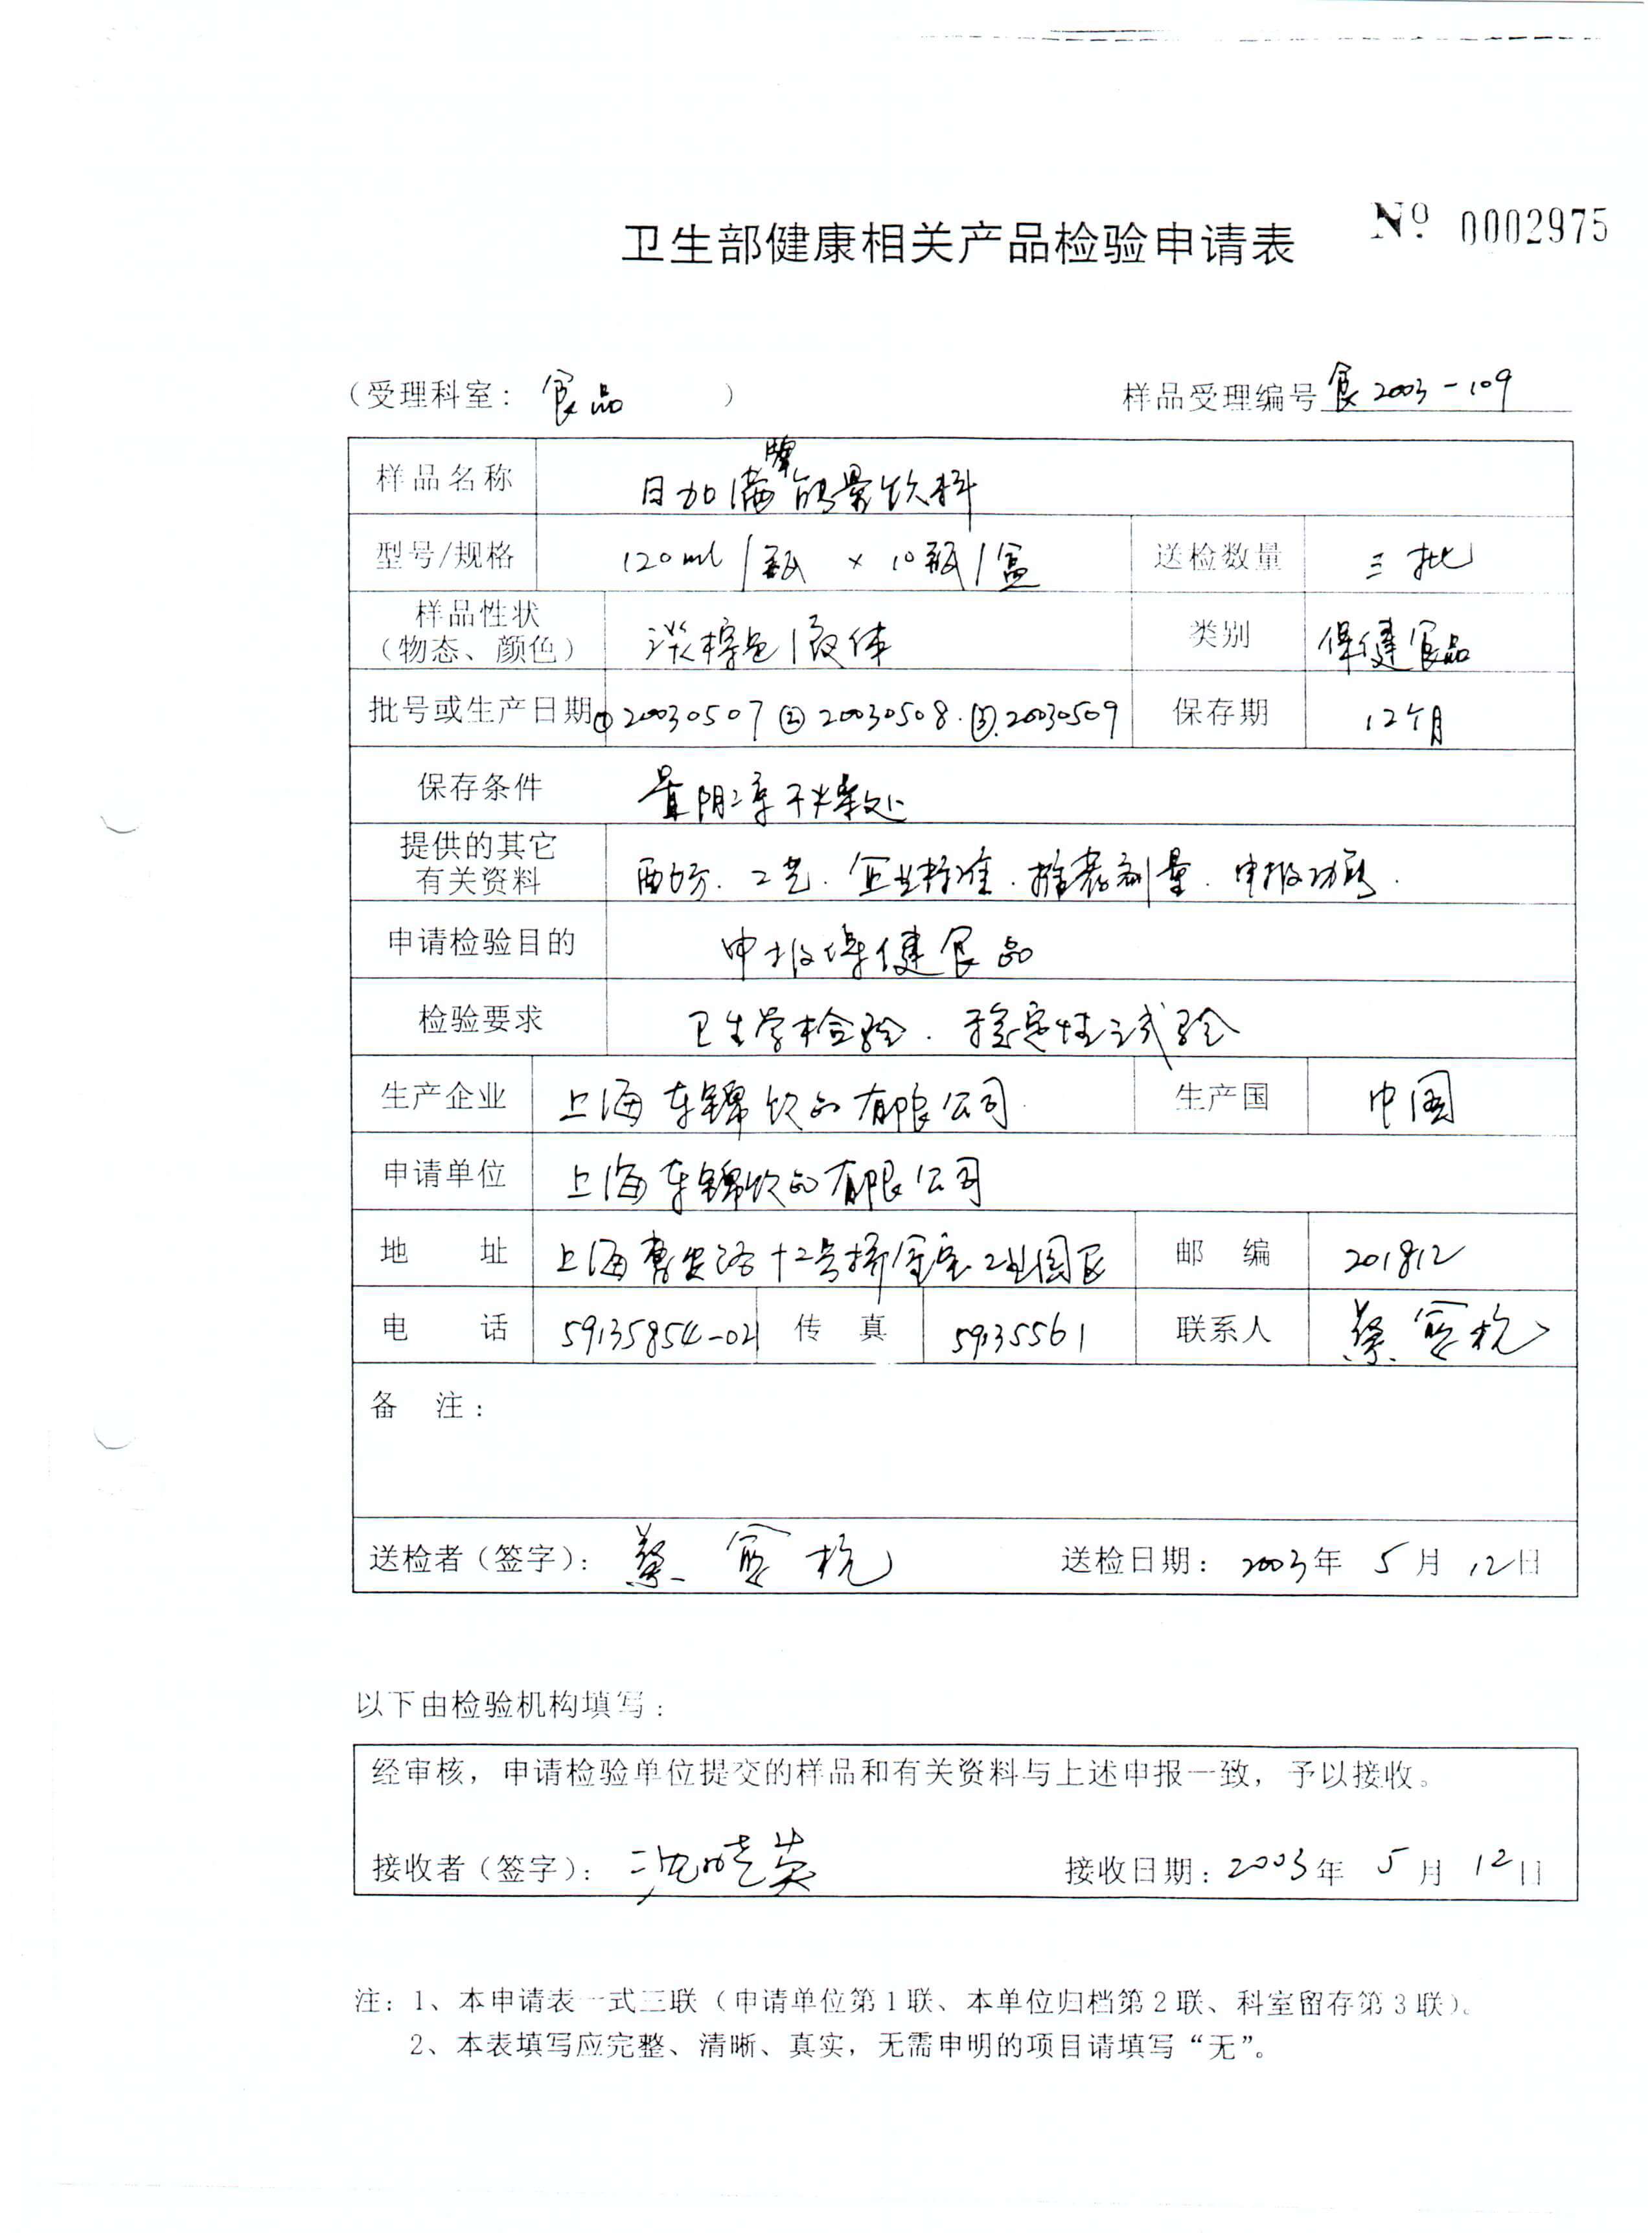 卫生部健康相关产品检验申请表 Nº 0002975
（受理科室： 食品 ） 样品受理编号 食2003-109
样品名称 日加满牌能量饮料
型号/规格 120ml/瓶 × 10瓶/盒 送检数量 三批
样品性状
（物态、颜色） 淡棕色液体 类别 保健食品
批号或生产日期 ①20030507 ②20030508. ③.20030509 保存期 12个月
保存条件 置阴凉干燥处
提供的其它
有关资料 配方. 工艺. 企业标准. 推荐剂量. 申报功能.
申请检验目的 申报保健食品
检验要求 卫生学检验. 稳定性试验
生产企业 上海东锦饮品有限公司 生产国 中国
申请单位 上海东锦饮品有限公司
地 址 上海曹安路十二号桥金宝工业园区 邮 编 201812
电 话 59135854-02 传 真 59135561 联系人 蔡
备 注：
送检者（签字）： 蔡 送检日期： 2003年 5月 12日
以下由检验机构填写：
经审核，申请检验单位提交的样品和有关资料与上述申报一致，予以接收。
接收者（签字）： 沈晓英 接收日期：2003年 5月 12日
注：1、本申请表一式三联（申请单位第1联、本单位归档第2联、科室留存第3联）。
2、本表填写应完整、清晰、真实，无需申明的项目请填写“无”。